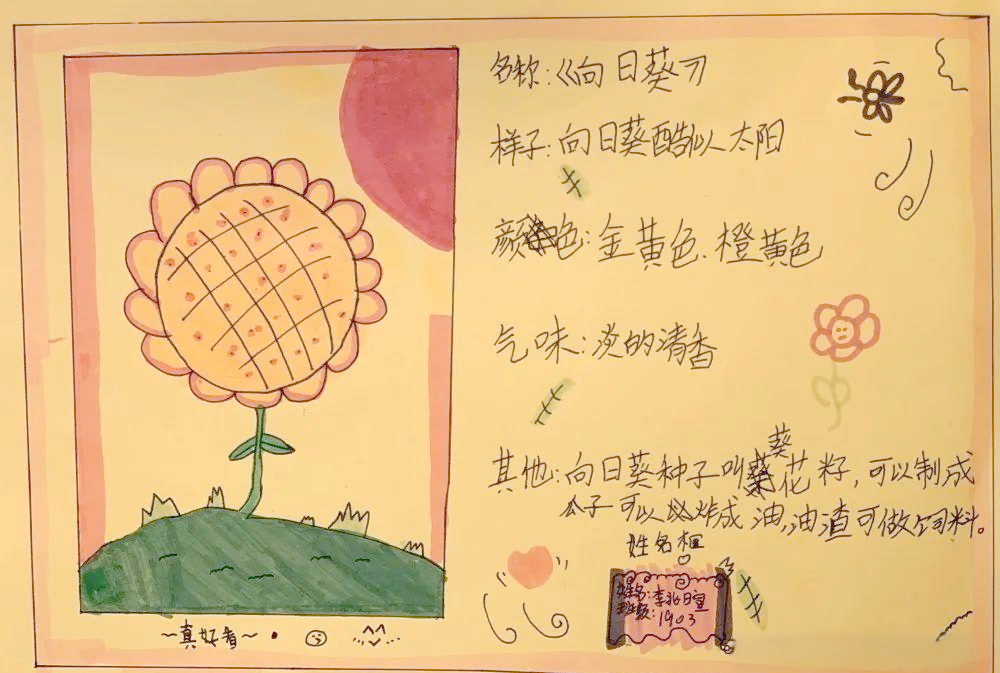 名称:《向日葵》
样子:向日葵酷似太阳
颜色:金黄色.橙黄色
气味:淡的清香
其他:向日葵种子叫葵花籽,可以制成
瓜子可以炸成油,油渣可做饲料。
姓名框
姓名:李
班级:1903
~真好看~